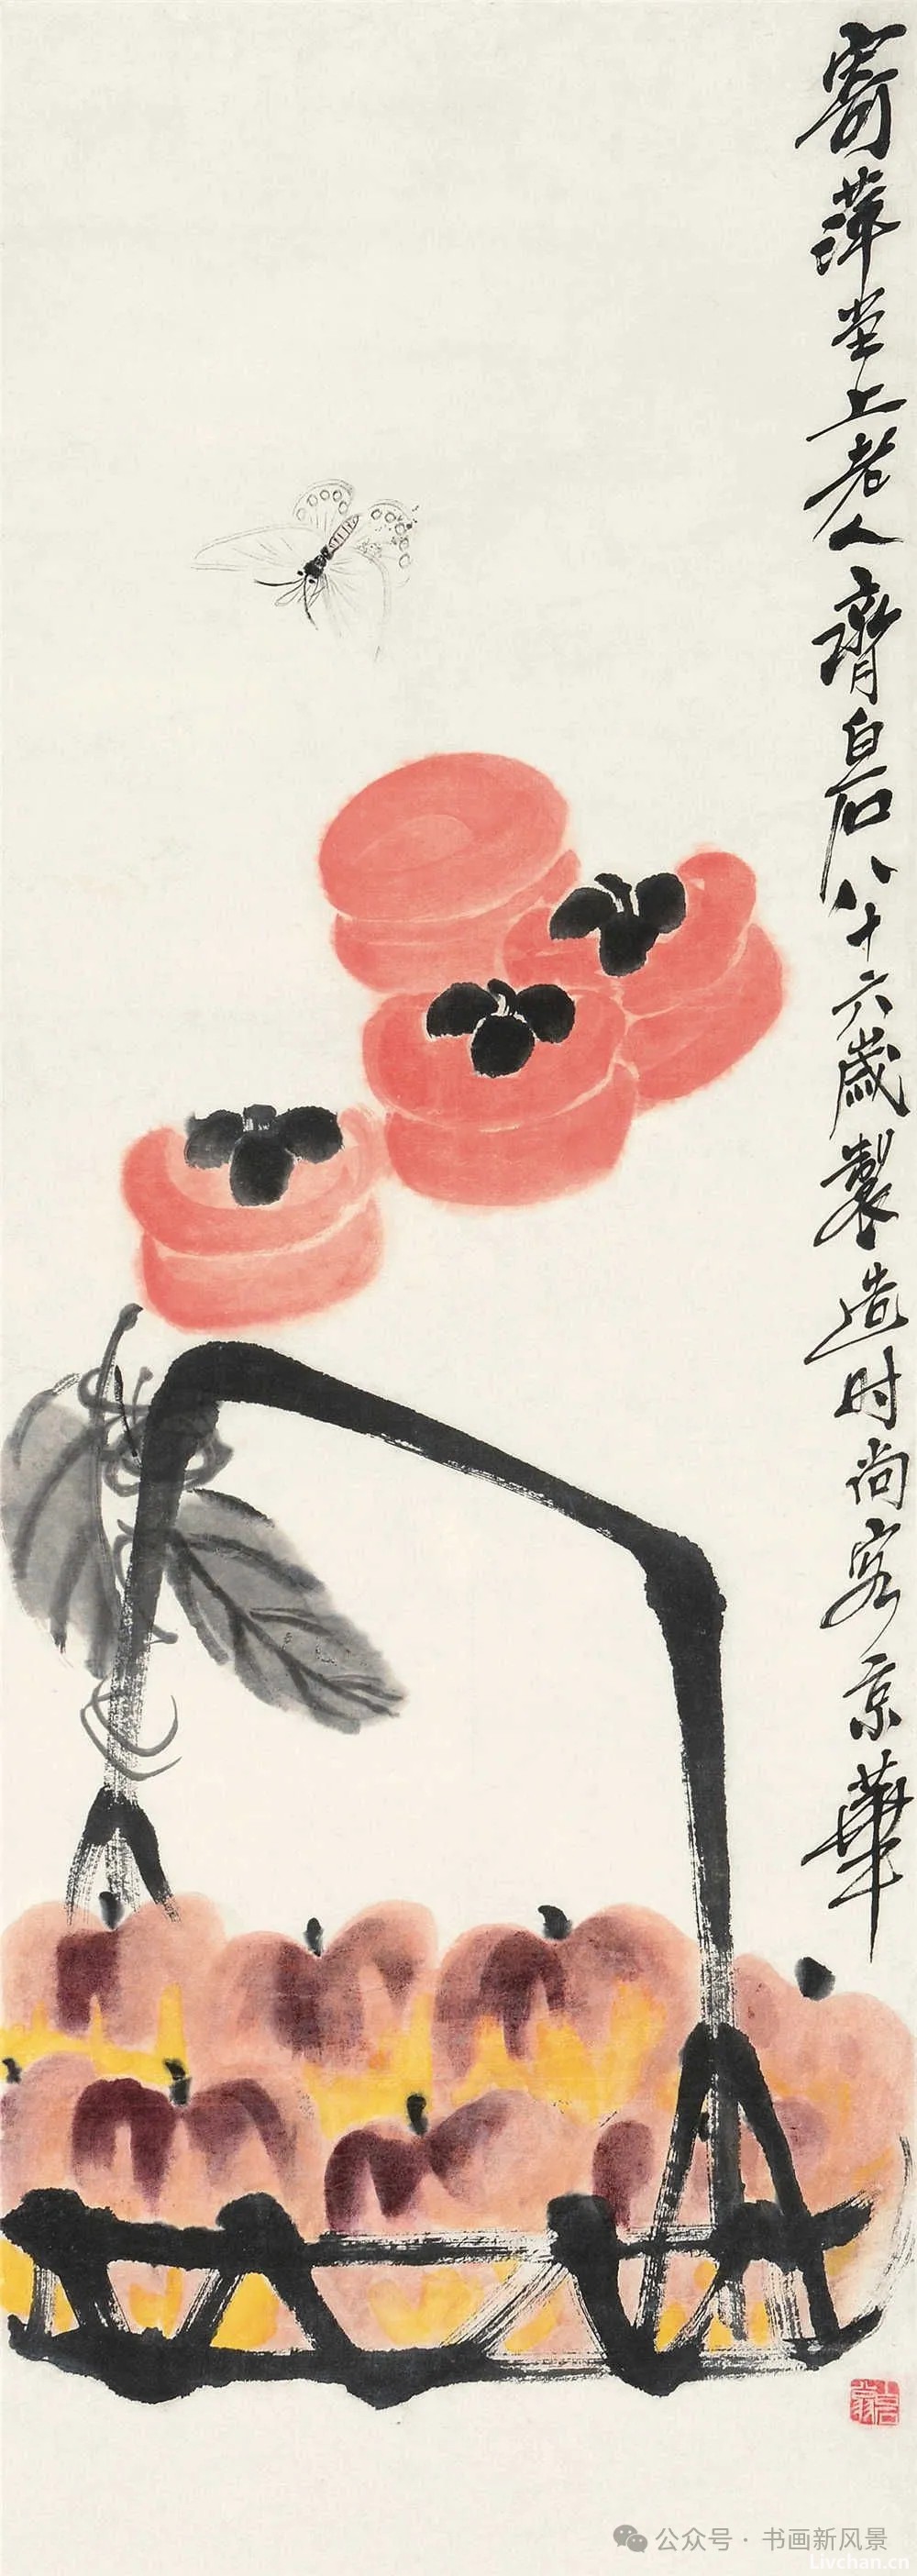 寄萍堂上老人齊白石八十六歲製造时尚客京華
白石翁
公众号·书画新风景
Livchan.cn